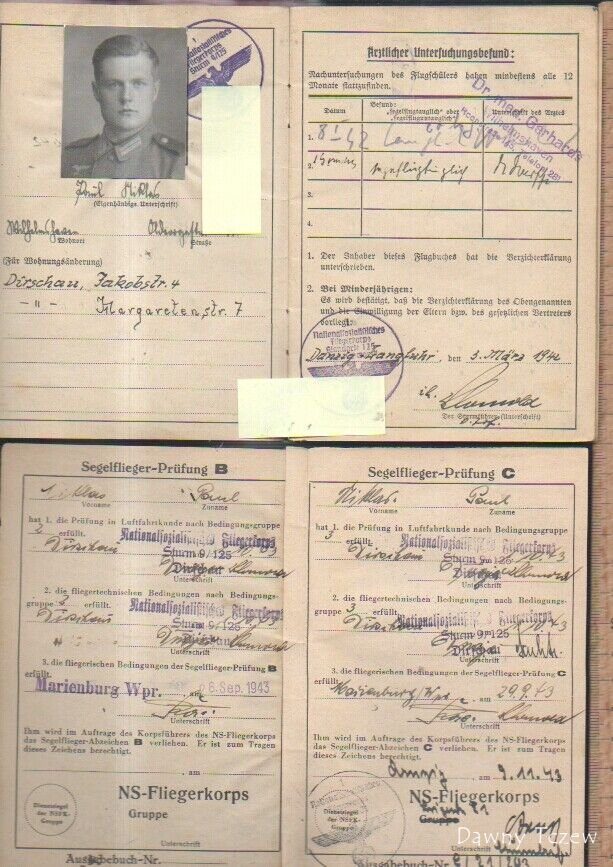 Nationalsozialistisches
Fliegerkorps
Sturm 9/125
Paul Niklas
(Eigenhändige Unterschrift)
Wilhelmshaven
Wohnort Straße
(Für Wohnungsänderung)
Dirschau, Jakobstr. 4
-"- Margaretenstr. 7
Ärztlicher Untersuchungsbefund:
Nachuntersuchungen des Flugschülers haben mindestens alle 12
Monate stattzufinden.
Dr. med. Gerhards
Wilhelmshaven
Datum
Befund:
"segelflugtauglich" oder
"segelfluguntauglich"
Unterschrift des Arztes
1.
2.
segelflugtauglich
3.
4.
1. Der Inhaber dieses Flugbuches hat die Verzichterklärung
unterschrieben.
2. Bei Minderjährigen:
Es wird bestätigt, daß die Verzichterklärung des Obengenannten
und die Einwilligung der Eltern bzw. des gesetzlichen Vertreters
vorliegt.
Nationalsozialistisches
Fliegerkorps
Danzig-Langfuhr, den 3. März 1942
Der Sturmführer (Unterschrift)
Segelflieger-Prüfung B
Niklas Paul
Vorname Zuname
hat 1. die Prüfung in Luftfahrtkunde nach Bedingungsgruppe
2 erfüllt.
Nationalsozialistisches Fliegerkorps
Dirschau
Sturm 9/125
Dirschau
Unterschrift
2. die fliegertechnischen Bedingungen nach Bedingungs-
gruppe 2 erfüllt.
Nationalsozialistisches Fliegerkorps
Dirschau
Sturm 9/125
Unterschrift
3. die fliegerischen Bedingungen der Segelflieger-Prüfung B
erfüllt.
Marienburg Wpr. 6. Sep. 1943
Unterschrift
Ihm wird im Auftrage des Korpsführers des NS-Fliegerkorps
das Segelflieger-Abzeichen B verliehen. Er ist zum Tragen
dieses Zeichens berechtigt.
, am
NS-Fliegerkorps
Gruppe
Dienstsiegel
der NSFK-
Gruppe
Unterschrift
Ausgabebuch-Nr.
Segelflieger-Prüfung C
Niklas Paul
Vorname Zuname
hat 1. die Prüfung in Luftfahrtkunde nach Bedingungsgruppe
3 erfüllt.
Nationalsozialistisches Fliegerkorps
Dirschau
Sturm 9/125
Dirschau
Unterschrift
2. die fliegertechnischen Bedingungen nach Bedingungs-
gruppe 3 erfüllt.
Nationalsozialistisches Fliegerkorps
Dirschau
Sturm 9/125
Unterschrift
3. die fliegerischen Bedingungen der Segelflieger-Prüfung C
erfüllt.
Marienburg Wpr., am 29.9.43
Unterschrift
Ihm wird im Auftrage des Korpsführers des NS-Fliegerkorps
das Segelflieger-Abzeichen C verliehen. Er ist zum Tragen
dieses Zeichens berechtigt.
Danzig, am 9.11.43
NS-Fliegerkorps
Gruppe
Dienstsiegel
der NSFK-
Gruppe
Ausgabebuch-Nr.
Dawny Tczew